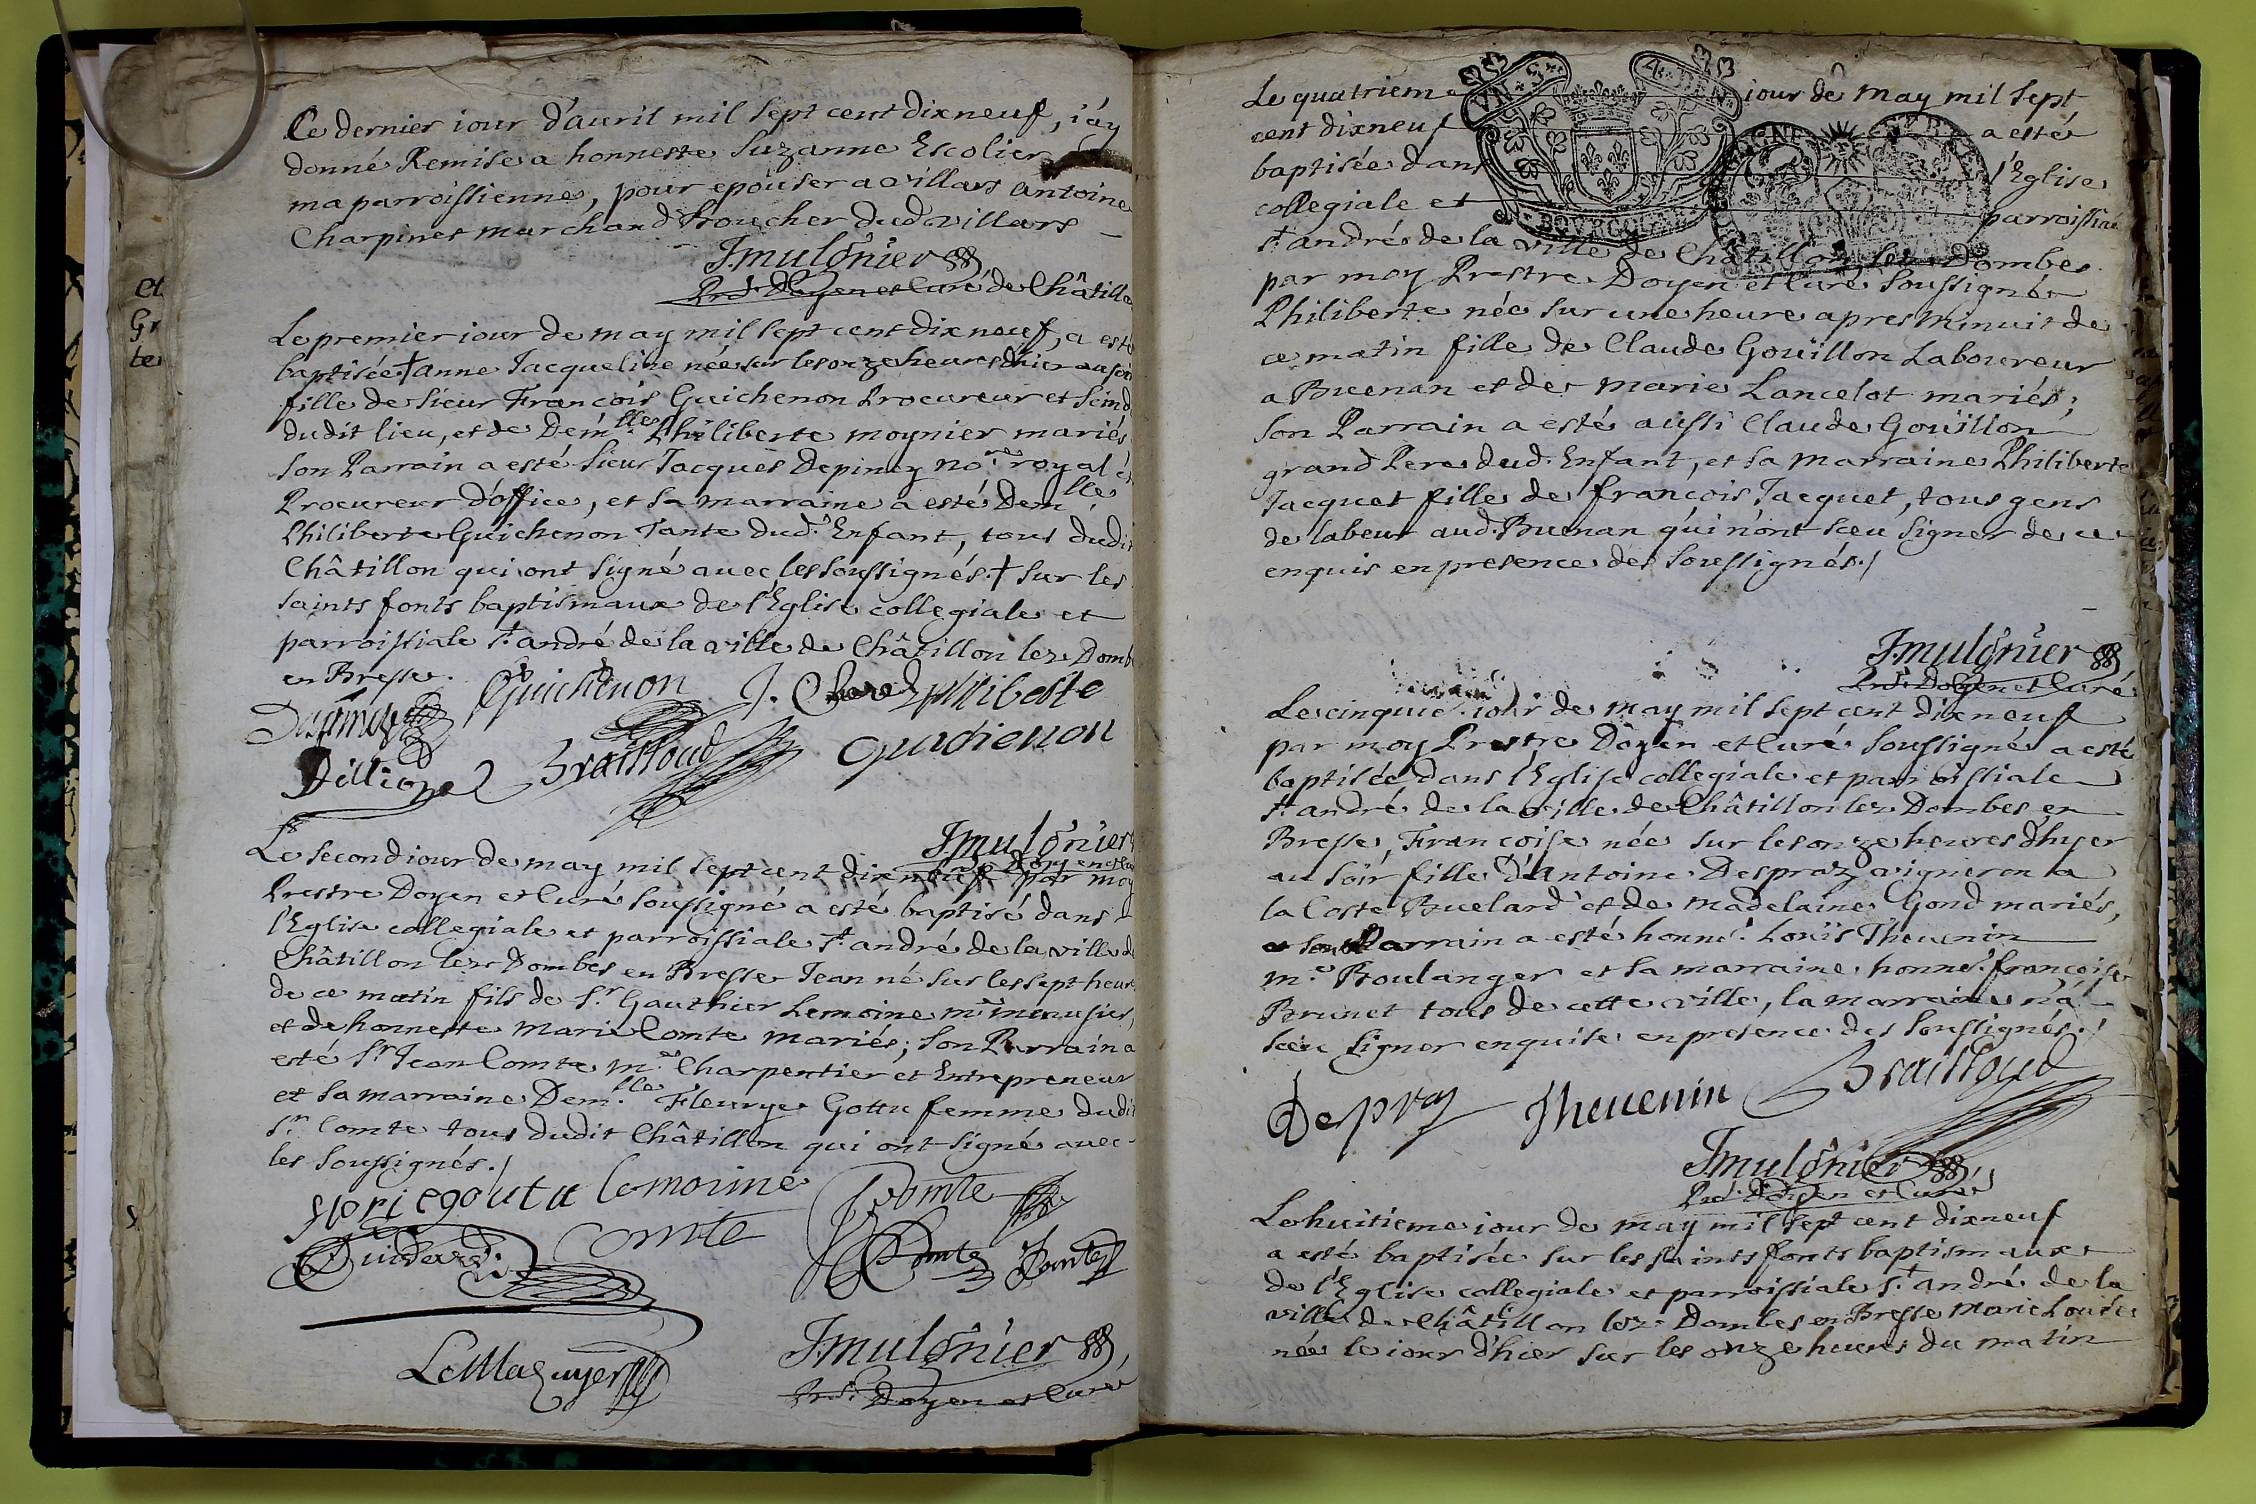 Ce dernier iour d'auril mil sept cent dixneuf, i'ay
donné Remise a honneste Suzanne Escolier
ma parroissienne, pour epouser a villars antoine
Charpinet marchand boucher dud. villars
J. mulonier
Prê. Doyen et Curé de Châtillo
Le premier iour de may mil sept cent dix neuf, a esté
baptisée † anne Jacqueline née sur les onze heures d'hier au soir
fille de sieur François Guichenon Procureur et Scind
dudit lieu, et de Dem.lle Philiberte moynier mariés
son Parrain a esté sieur Jacques Depincy no.re royal et
Procureur d'office, et sa marraine a esté Dem.lle
Philiberte Guichenon Tante dud. Enfant, tous dudit
Châtillon qui ont signé avec les soussignés. † sur les
saints fonts baptismaux de l'Eglise collegiale et
parroissiale s.t andré de la ville de Châtillon lez Domb
en Bresse.
Guichenon philiberte
guichenon
Brailloud
J. mulonier
Doyen et Cu
Le second iour de may mil sept cent dixneuf par moy
Prestre Doyen et Curé soussigné a esté baptisé dans
l'Eglise collegiale et parroissiale s.t andré de la ville de
Châtillon lez Dombes en Bresse Jean né sur les sept heure
de ce matin fils de s.r Gauthier Lemoine m.e menusier,
et de honneste Marie Comte mariés; son Parrain a
esté s.r Jean Comte m.e Charpentier et Entrepreneur
et sa marraine Dem.lle Fleurye Gottu femme dudit
s.r Comte tous dudit Châtillon qui ont signé avec
les soussignés./
lemoine Comte
Comte
Comte Comte
J. mulonier
Prê. Doyen et Curé
et
Gr
te
Le quatrieme iour de may mil sept
cent dixneuf a esté
baptisée dans l'Eglise
collegiale et parroissiale
s.t andré de la ville de Châtillon lez Dombes
par moy Prestre Doyen et Curé soussigné
Philiberte née sur une heure apres minuit de
ce matin fille de Claude Goüillon Laboureur
a Buenan et de marie Lancelot mariés;
son Parrain a esté aussi Claude Goüillon
grand Pere dud. Enfant, et sa marraine Philiberte
Jacquet fille de françois Jacquet, tous gens
de labeur aud. Buenan qui n'ont sceu signer de ce
enquis en presence des soussignés./
J. mulonier
Prê. Doyen et Curé
Le cinquie. iour de may mil sept cent dixneuf
par moy Prestre Doyen et Curé soussigné a esté
baptisée dans l'Eglise collegiale et parroissiale
s.t andré de la ville de Châtillon lez Dombes en
Bresse, Françoise née sur les onze heures d'hyer
au soir fille d'Antoine Despraz vigneron a
la Coste Buelard et de madelaine Gond mariés,
son Parrain a esté honne. Loüis Theuenin
m.e Boulanger et sa marraine honne. françoise
Brunet tous de cette ville, la marraine n'a
sceu signer enquise en presence des soussignés./
Depraz Theuenin Brailloud
J. mulonier
Prê. Doyen et Curé
Le huitieme iour de may mil sept cent dixneuf
a esté baptisée sur les saints fonts baptismaux
de l'Eglise collegiale et parroissiale s.t andré de la
ville de Châtillon lez Dombes en Bresse Marie Louise
née le iour d'hier sur les onze heures du matin